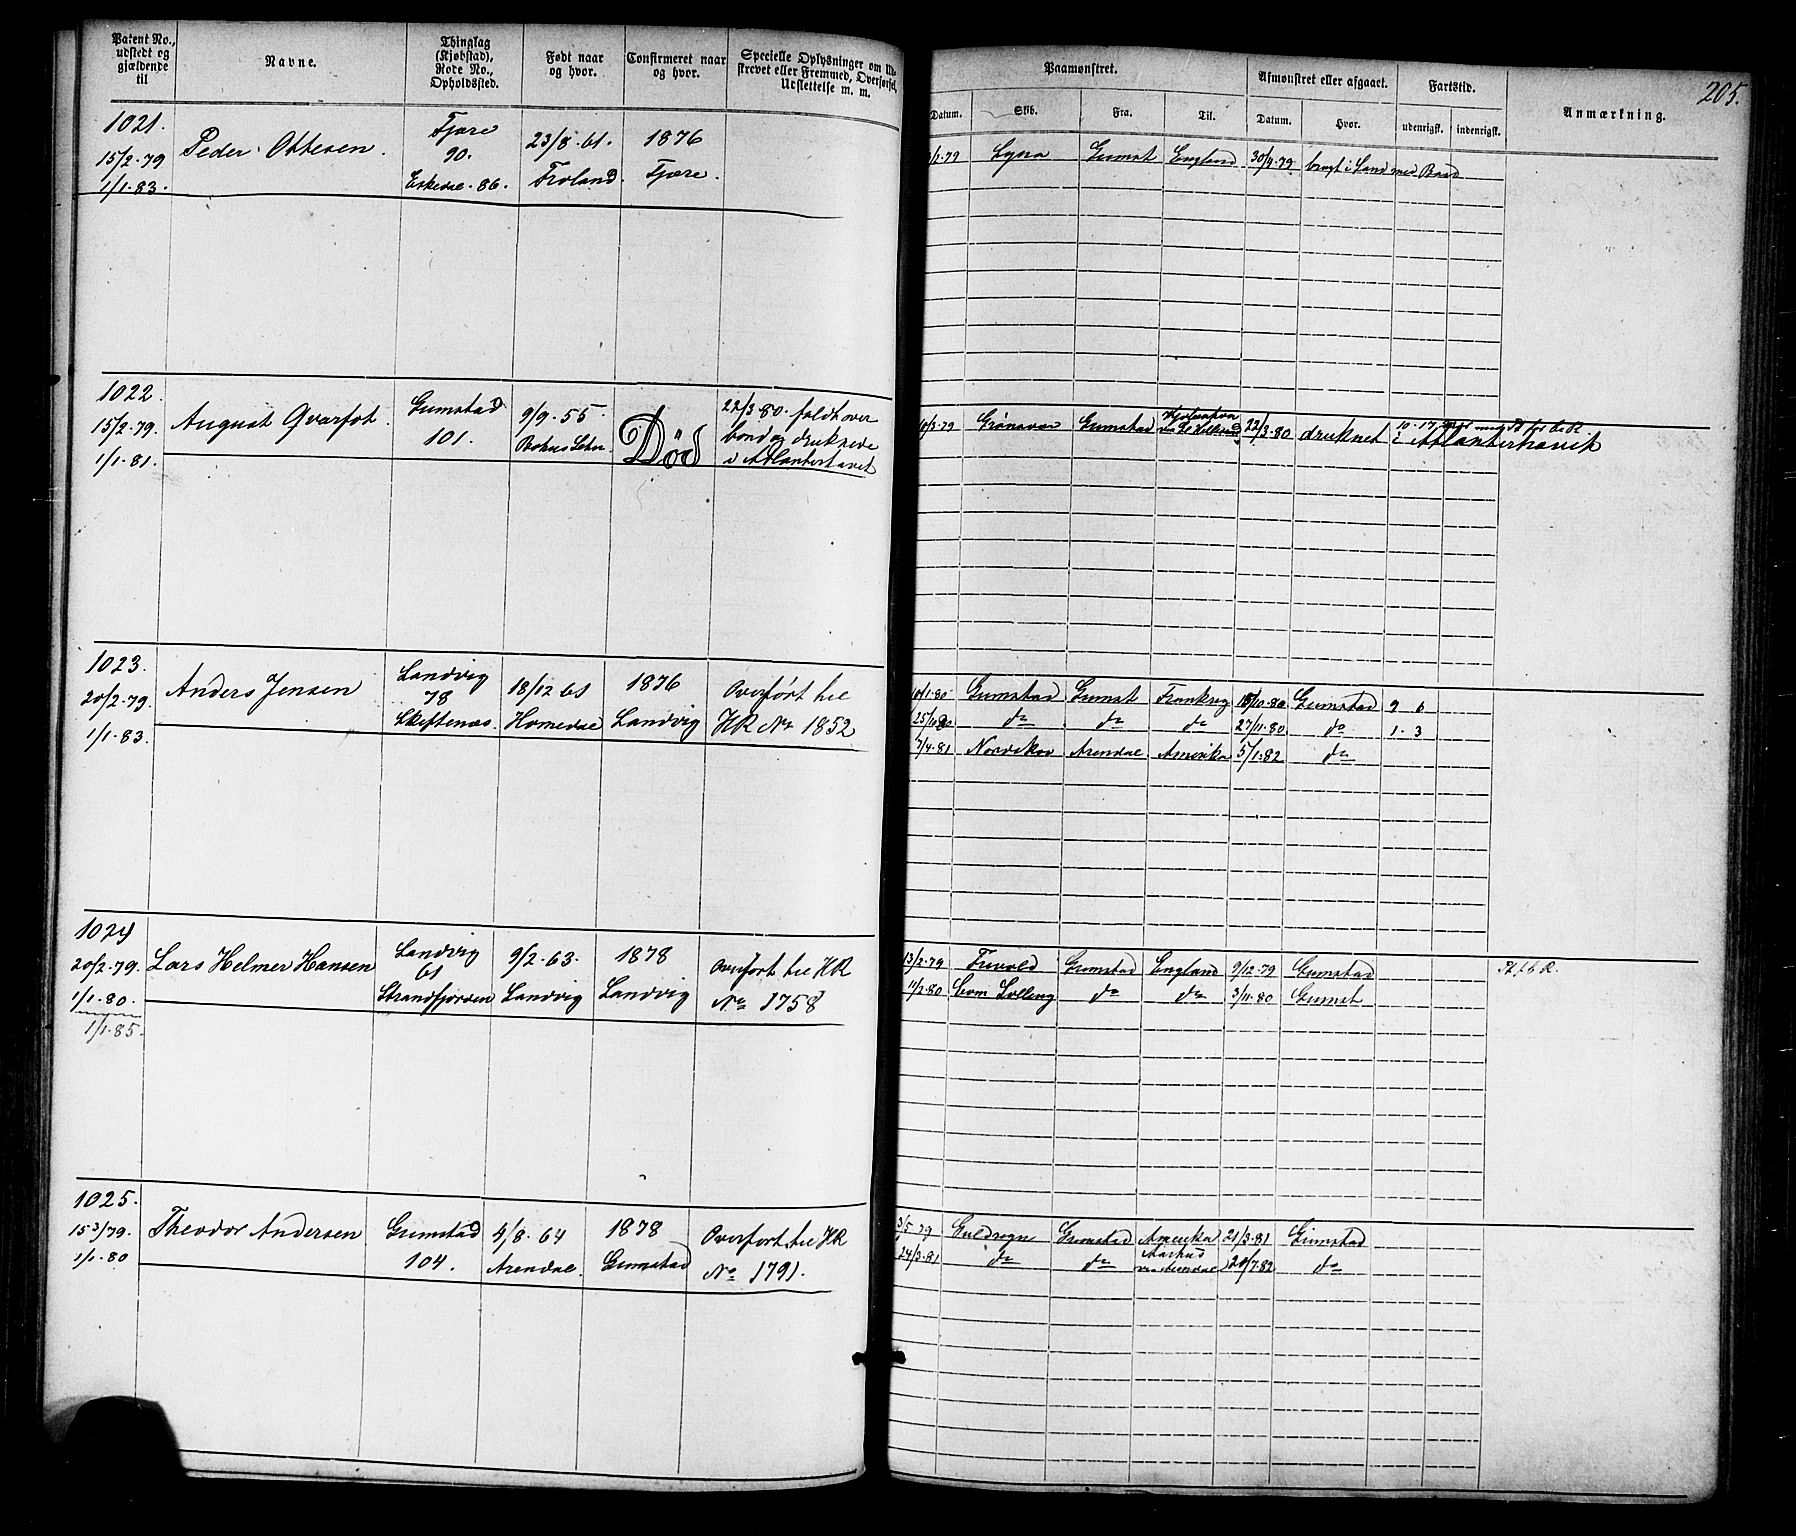 Patent No.,
udstedt og
gjældende
til
Navne.
Thinglag
(Kjøbstad),
Rode No.,
Opholdssted.
Født naar
og hvor.
Confirmeret naar
og hvor.
Specielle Oplysninger om Ud-
skrevet eller Fremmed, Overførsel,
Udslettelse m. m.
Paamønstret.
Datum.
Skib.
Fra.
Til.
Afmønstret eller afgaaet.
Datum.
Hvor.
Fartstid.
udenrigsk.
indenrigsk.
Anmærkning.
205.
1021.
15/2-79
1/1-83.
Peder Ottesen.
Fjære
90.
Eskedal-86.
23/8-61.
Froland.
1876
Fjære.
Lyna Grimst England 30/9-79 bragt i Land med Baad
1022
15/2-79.
1/1-81.
August Qvarfot.
Grimstad
101.
9/9-55
Bohus Lehn
Død
22/3-80. faldt over
bord og druknede
i Atlanterhavet
10/3-79 Grønsvær Grimstad 22/3-80 druknet i Atlanterhavet
1023.
20/2-79.
1/1-83.
Anders Jensen
Landvig
78
Skiftenæs.
18/12 61
Homedal
1876
Landvig
Overført til
HR No 1852
10/1-80 Grimstad Grimst Frankrig 18/10-80 Grimstad 9 6
25/10-80 do do do 27/11-80 do 1-3
7/4-81 Nordskov Arendal Amerika 5/1-82 do
1024
20/2-79.
1/1-80.
1/1-85.
Lars Helmer Hansen
Landvig
61
Strandfjorden
9/2-63.
Landvig
1878
Landvig
Overført til HR
No 1758
13/2-79 Frivold Grimstad England 9/12-79 Grimstad
11/2-80 do do 3/11-80 Grimst
1025.
15 3/79.
1/1-80
Theodor Andersen
Grimstad
104.
4/8-64
Arendal.
1878
Grimstad
Overført til HR
No 1791.
3/5-79 Guldregn Grimstad Amerika 21/3-81 Grimstad
24/3-81 do do Aarhus via Arendal 20/7-82 do